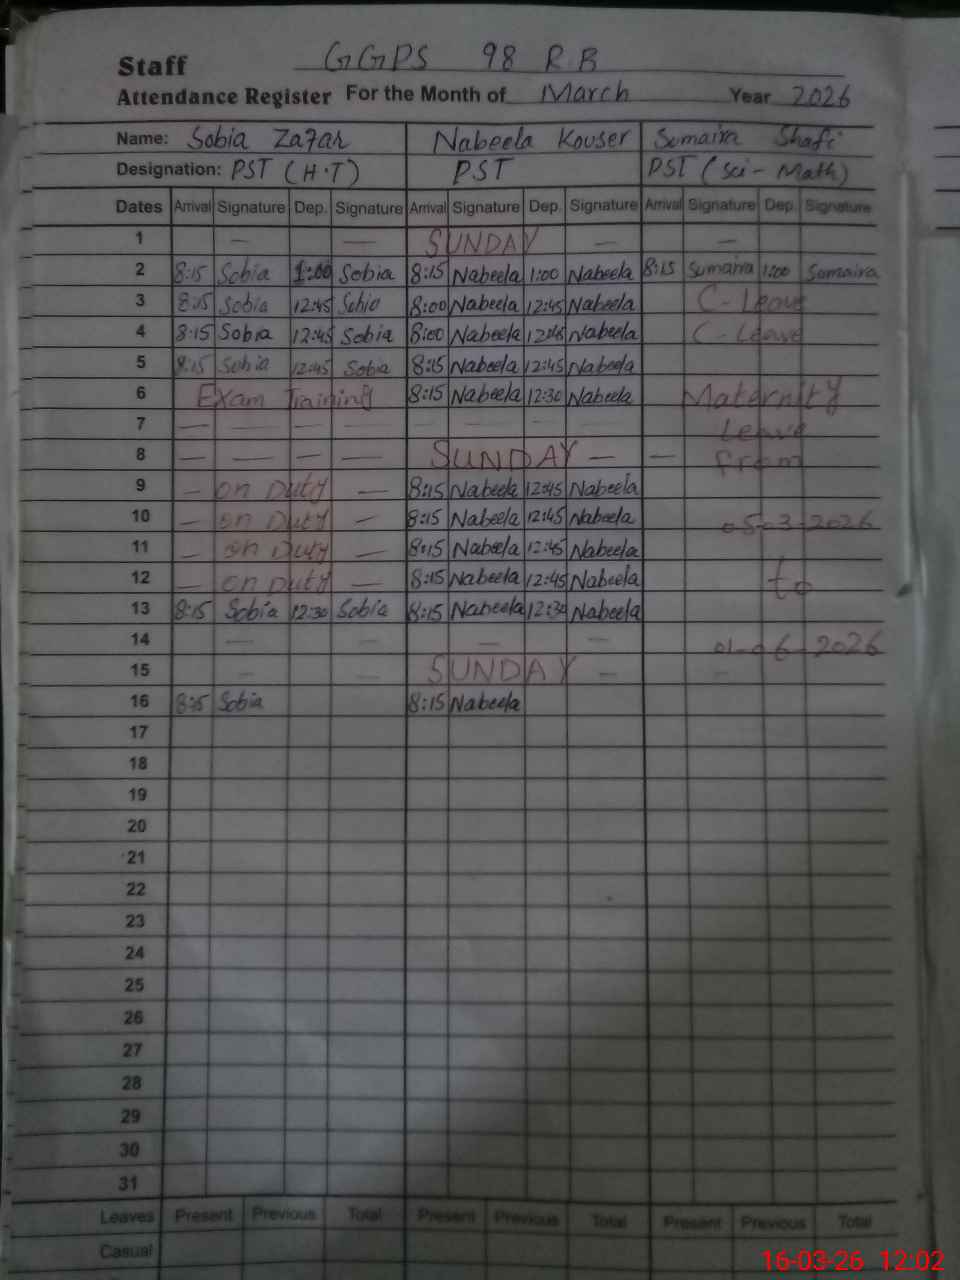 Staff GGPS 98 RB
Attendance Register For the Month of March Year 2026
Name: Sobia Zafar Nabeela Kouser Sumaira Shafi
Designation: PST (H.T) PST PST (Sci-Math)
Dates Arrival Signature Dep. Signature Arrival Signature Dep. Signature Arrival Signature Dep. Signature
1 — — SUNDAY — —
2 8:15 Sobia 1:00 Sobia 8:15 Nabeela 1:00 Nabeela 8:15 Sumaira 1:00 Sumaira
3 8:15 Sobia 12:45 Sobia 8:00 Nabeela 12:45 Nabeela C-Leave
4 8:15 Sobia 12:45 Sobia 8:00 Nabeela 12:45 Nabeela C-Leave
5 8:15 Sobia 12:45 Sobia 8:15 Nabeela 12:45 Nabeela
6 Exam Training 8:15 Nabeela 12:30 Nabeela Maternity
7 — — — — — — — — Leave
8 — — — — SUNDAY — — From
9 — on Duty — 8:15 Nabeela 12:45 Nabeela
10 — on Duty — 8:15 Nabeela 12:45 Nabeela 05-03-2026
11 — on Duty — 8:15 Nabeela 12:45 Nabeela
12 — on Duty — 8:15 Nabeela 12:45 Nabeela to
13 8:15 Sobia 12:30 Sobia 8:15 Nabeela 12:30 Nabeela
14 — — — — 01-06-2026
15 — — SUNDAY — —
16 8:15 Sobia 8:15 Nabeela
17
18
19
20
21
22
23
24
25
26
27
28
29
30
31
Leaves Present Previous Total Present Previous Total Present Previous Total
Casual
16-03-26 12:02